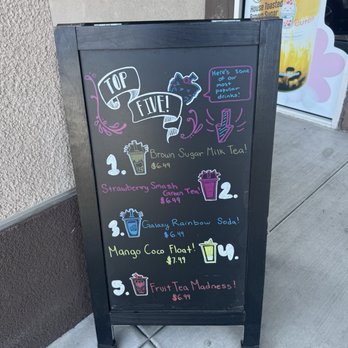 House Toasted
Brown Sugar
TOP
FIVE!
Here's some of
our most
popular
drinks!
1. Brown Sugar Milk Tea!
$6.49
Strawberry Smash
Green Tea! 2.
$6.49
3. Galaxy Rainbow Soda!
$6.49
Mango Coco Float! 4.
$7.99
5. Fruit Tea Madness!
$6.99